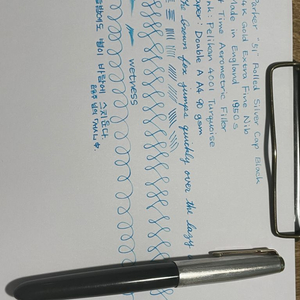 Parker '51' Rolled Silver Cap Black
14k Gold Extra Fine Nib
Made in England 1950s
Time Aerometric Filler
Pelikan 4001 Turquoise
Double A A4 90 gsm
brown fox jumps quickly over the lazy
wetness
밤에도 별이 바람에 스치운다.